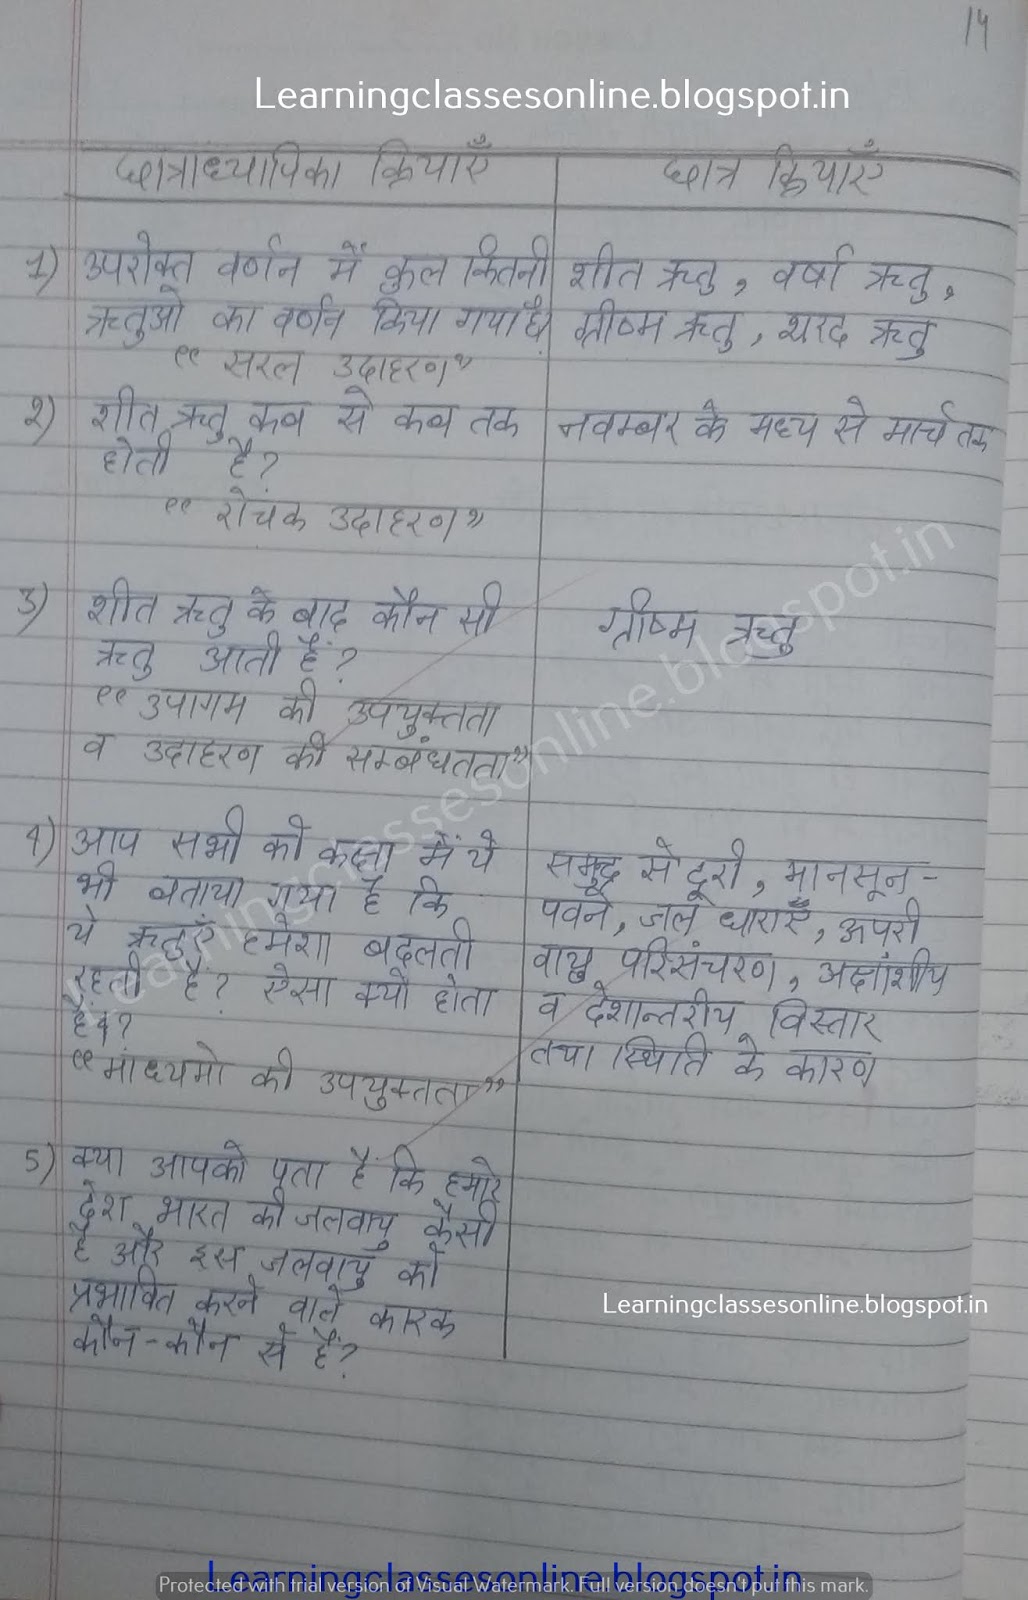 14
Learningclassesonline.blogspot.in
छात्राध्यापिका क्रियाएँ
छात्र क्रियाएँ
1) उपरोक्त वर्णन में कुल कितनी
ऋतुओ का वर्णन किया गया है।
“ सरल उदाहरण”
शीत ऋतु, वर्षा ऋतु,
ग्रीष्म ऋतु, शरद ऋतु
2) शीत ऋतु कब से कब तक
होती है?
“ रोचक उदाहरण”
नवम्बर के मध्य से मार्च तक
3) शीत ऋतु के बाद कौन सी
ऋतु आती हैं?
“ उपागम की उपयुक्तता
व उदाहरण की सम्बंधतता”
ग्रीष्म ऋतु
4) आप सभी को कक्षा में ये
भी बताया गया है कि
ये ऋतुएँ हमेशा बदलती
रहती हैं? ऐसा क्यों होता
है?
“ माध्यमो की उपयुक्तता”
समुद्र से दूरी, मानसून-
पवने, जल धाराएँ, ऊपरी
वायु परिसंचरण, अक्षांशीय
व देशान्तरीय विस्तार
तथा स्थिति के कारण
5) क्या आपको पता हैं कि हमारे
देश भारत की जलवायु कैसी
है और इस जलवायु को
प्रभावित करने वाले कारक
कौन-कौन से हैं?
Learningclassesonline.blogspot.in
Learningclassesonline.blogspot.in
Learningclassesonline.blogspot.in
Protected with trial version of Visual Watermark. Full version doesn't put this mark.